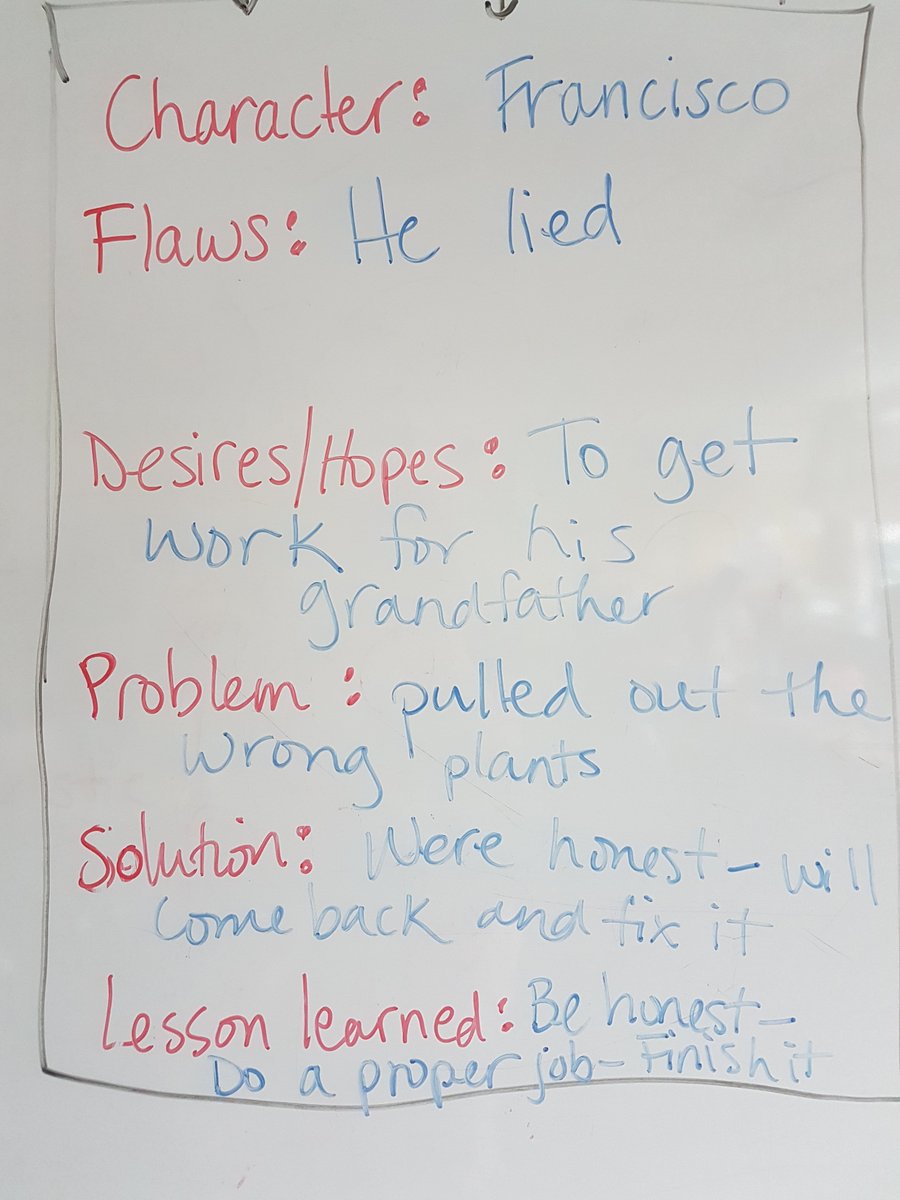 Character: Francisco
Flaws: He lied
Desires/Hopes: To get
work for his
grandfather
Problem: pulled out the
wrong plants
Solution: Were honest - will
come back and fix it
Lesson learned: Be honest -
Do a proper job - Finish it